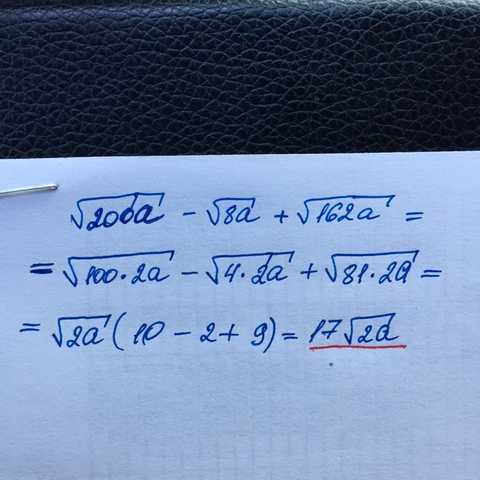 √200a - √8a + √162a =
= √100·2a - √4·2a + √81·2a =
= √2a (10 - 2 + 9) = 17√2a